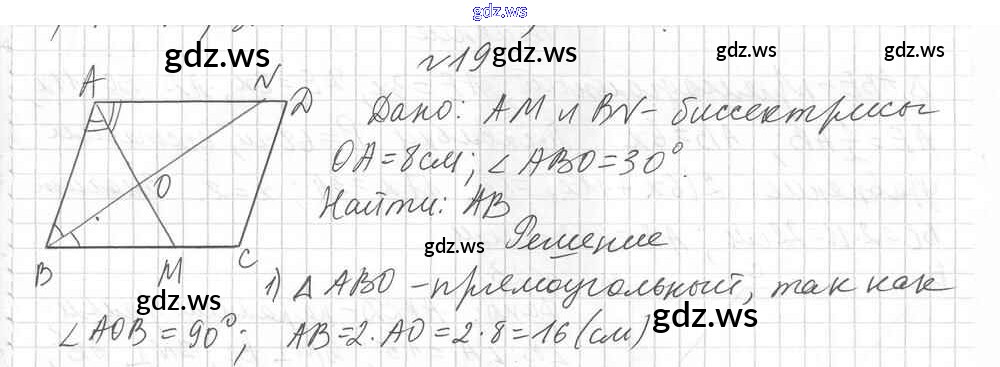 gdz.ws
№19
gdz.ws gdz.ws gdz.ws
A N D
Дано: AM и BN - биссектрисы
OA = 8 см; ∠ABO = 30°.
O
Найти: AB
gdz.ws
Решение
B M C
1) △ABO - прямоугольный, так как
gdz.ws gdz.ws
∠AOB = 90°; AB = 2·AO = 2·8 = 16 (см)